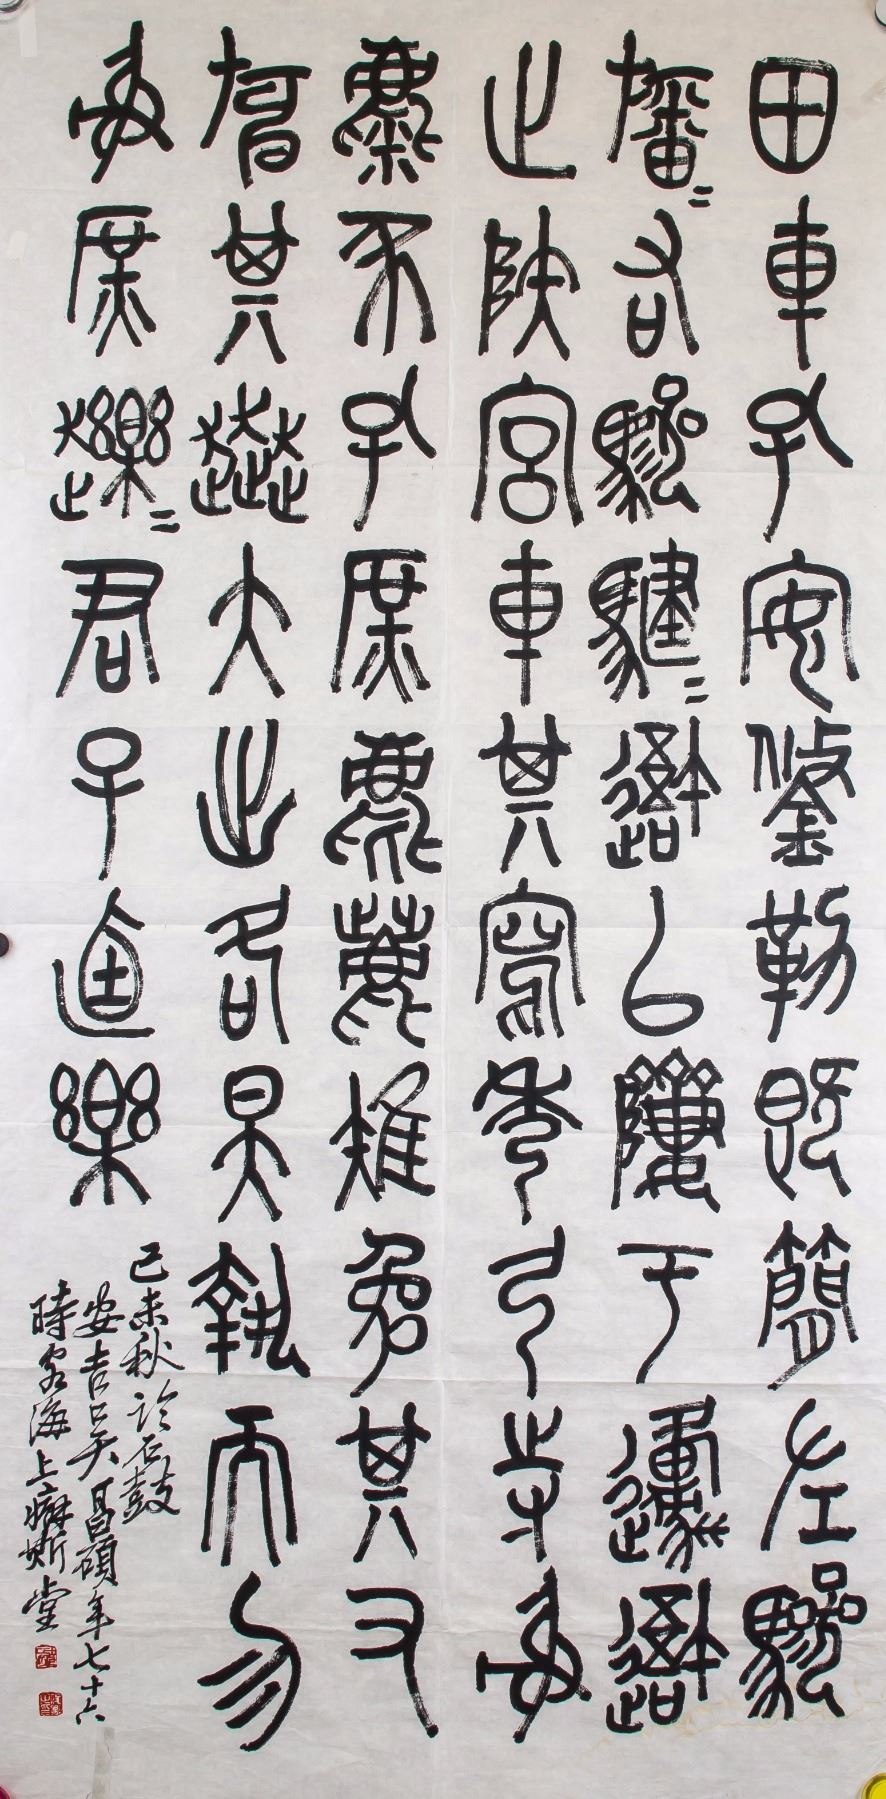 田車孔安鋚勒既簡左驂
旛=右驂騝=䢩以隮于邍䢩
止陕宮車其寫秀弓寺射
麋豕孔庶麀鹿雉兔其又
旃其奔大出各昊執而勿
射庶䟏=君子逌樂
己未秋臨石鼓
安吉吳昌碩年七十六
時客海上癖斯堂